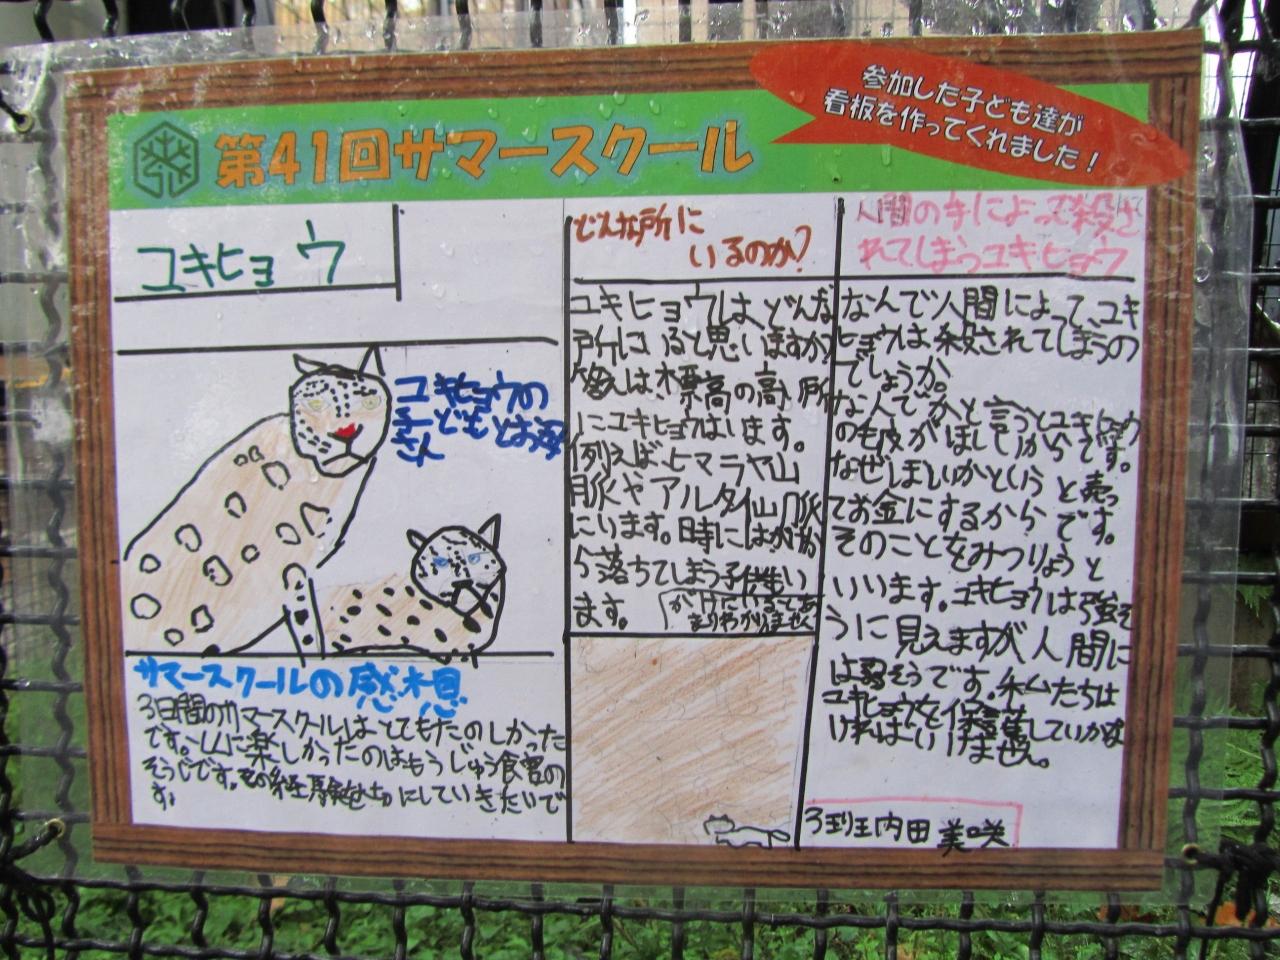 第41回サマースクール
参加した子ども達が
看板を作ってくれました!
ユキヒョウ
ユキヒョウの
子どもとお母
さん
サマースクールの感想
3日間のサマースクールはとてもたのしかった
です。に楽しかったのはもうじゅう舎の
そうじです。の経験をにしていきたいで
す。
どんな所に
いるのか?
ユキヒョウは、どんな
所にいると思いますか
答えは、標高の高い所
にユキヒョウはいます。
例えば、ヒマラヤ山
脈やアルタイ山脈
にいます。時にはがけか
ら落ちてしまう子供もい
ます。
がけにいるとあ
まりわかりません
人間の手によって殺さ
れてしまうユキヒョウ
なんで人間によって、ユキ
ヒョウは殺されてしまうの
でしょうか。
なんでかと言うとユキヒョウ
の毛皮がほしいからです。
なぜほしいかというと売っ
てお金にするからです。
そのことをみつりょうと
いいます。ユキヒョウは強そ
うに見えますが人間に
は弱そうです。私たちは
ユキヒョウを保護していかな
ければいけません。
3班内田 美咲